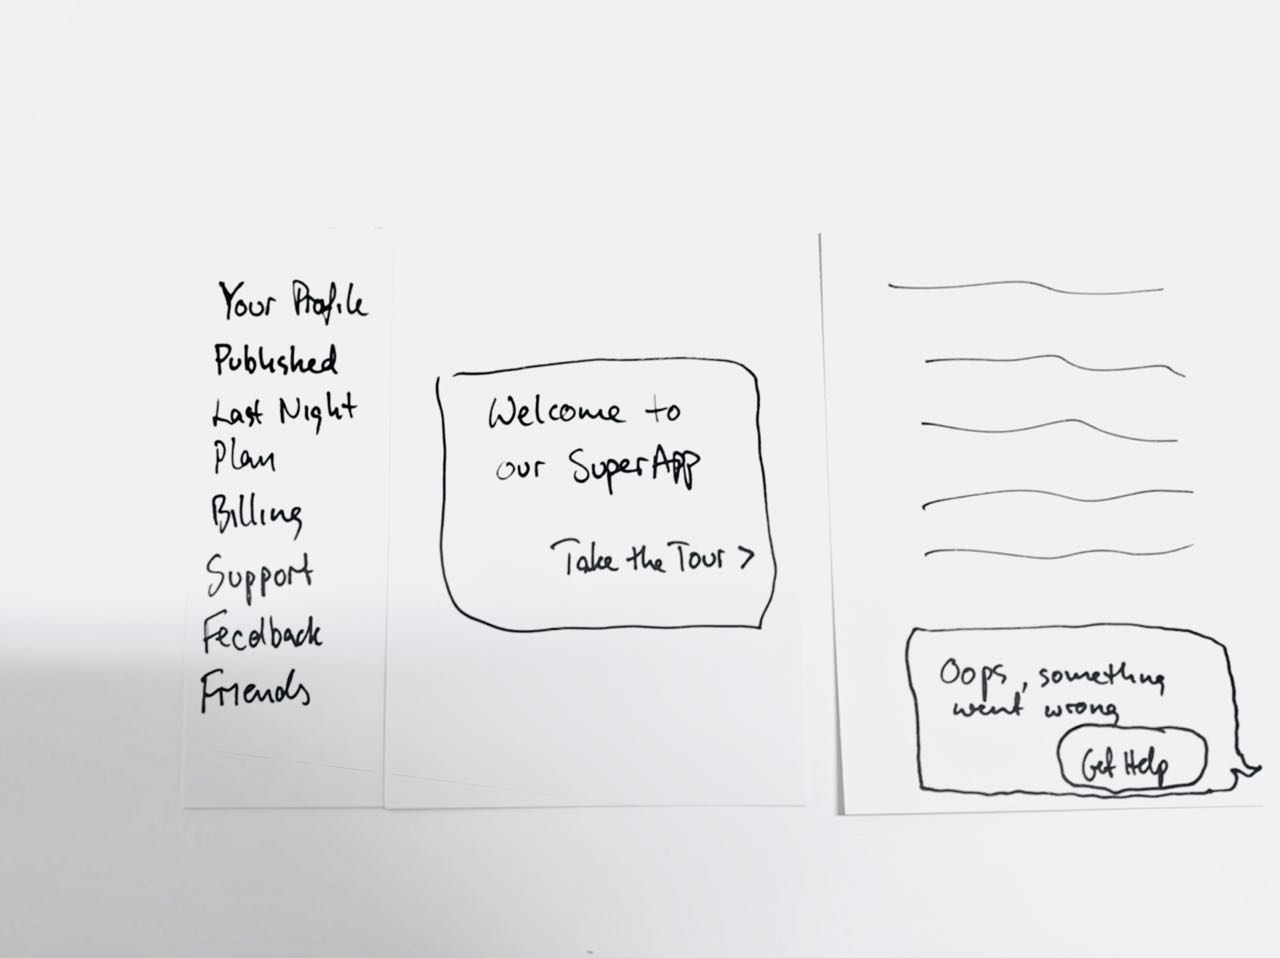 Your Profile
Published
Last Night
Plan
Billing
Support
Feedback
Friends
Welcome to
our SuperApp
Take the Tour >
Oops, something
went wrong
Get Help